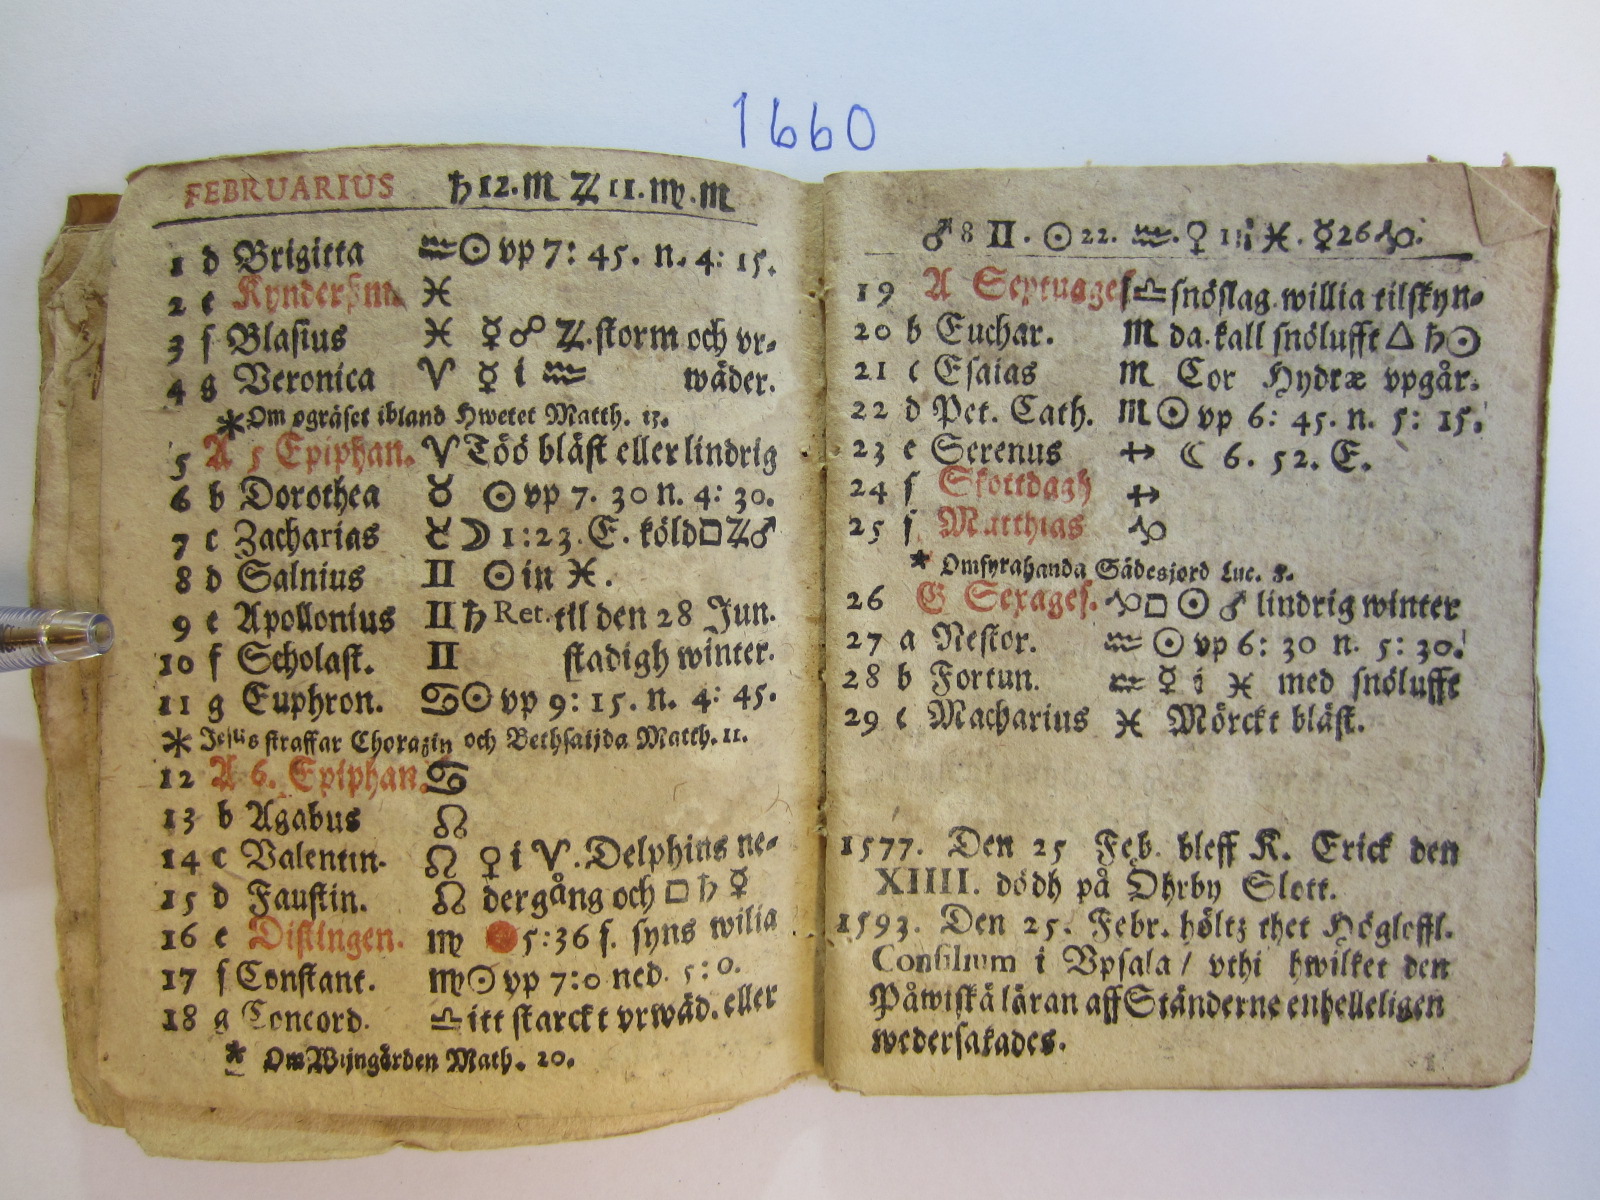 1660
FEBRUARIUS ♄ 12. ♏ ♃ 11. ♍. ♏
1 d Brigitta ♒ ☉ vp 7: 45. n. 4: 15.
2 e Kynderſm. ♓
3 f Blaſius ♓ ☿ ☍ ♃. ſtorm och vr-
4 g Veronica ♈ ☿ i ♒ wäder.
* Om ogräſet ibland Hwetet Matth. 13.
5 A 5 Epiphan. ♈ Töö bläſt eller lindrig
6 b Dorothea ♉ ☉ vp 7. 30 n. 4: 30.
7 c Zacharias ♉ ☽ 1:23. E. köld □ ♃ ♂
8 d Salnius ♊ ☉ in ♓.
9 e Apollonius ♊ ♄ Ret. til den 28 Jun.
10 f Scholaſt. ♊ ſtadigh winter.
11 g Euphron. ♋ ☉ vp 9: 15. n. 4: 45.
* Jeſus ſtraffar Chorazin och Bethſaijda Matth. 11.
12 A 6. Epiphan. ♋
13 b Agabus ♌
14 c Valentin. ♌ ♀ i ♈. Delphins ne-
15 d Fauſtin. ♌ dergång och □ ♄ ☿
16 e Diſtingen. ♍ ● 5:36 f. ſyns wilia
17 f Conſtant. ♍ ☉ vp 7:0 ned. 5:0.
18 g Concord. ♎ itt ſtarckt vrwäd. eller
* Om Wijngården Math. 20.
♂ 8 ♊. ☉ 22. ♒. ♀ ♓. ☿ 26 ♑.
19 A Septuageſ. ♎ ſnöſlag willia tilſkyn-
20 b Euchar. ♏ da. kall ſnölufft △ ♄ ☉
21 c Eſaias ♏ Cor Hydræ vpgår.
22 d Pet. Cath. ♏ ☉ vp 6: 45. n. 5: 15.
23 e Serenus ♐ ☾ 6. 52. E.
24 f Skottdagh ♐
25 f Matthias ♑
* Om fyrahanda Sädesjord Luc. 8.
26 G Sexageſ. ♑ □ ☉ ♂ lindrig winter
27 a Neſtor. ♒ ☉ vp 6: 30 n. 5: 30.
28 b Fortun. ♒ ☿ i ♓ med ſnölufft
29 c Macharius ♓ Mörckt bläſt.
1577. Den 25 Feb. bleff K. Erick den
XIIII. dödh på Öhrby Slott.
1593. Den 25. Febr. höltz thet Högloffl.
Conſilium i Vpſala / vthi hwilket den
Påwiſkä läran aff Ständerne enhelleligen
wederſakades.